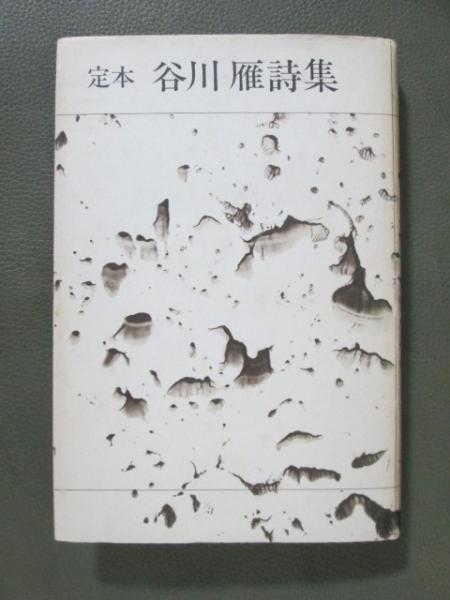 定本 谷川雁詩集